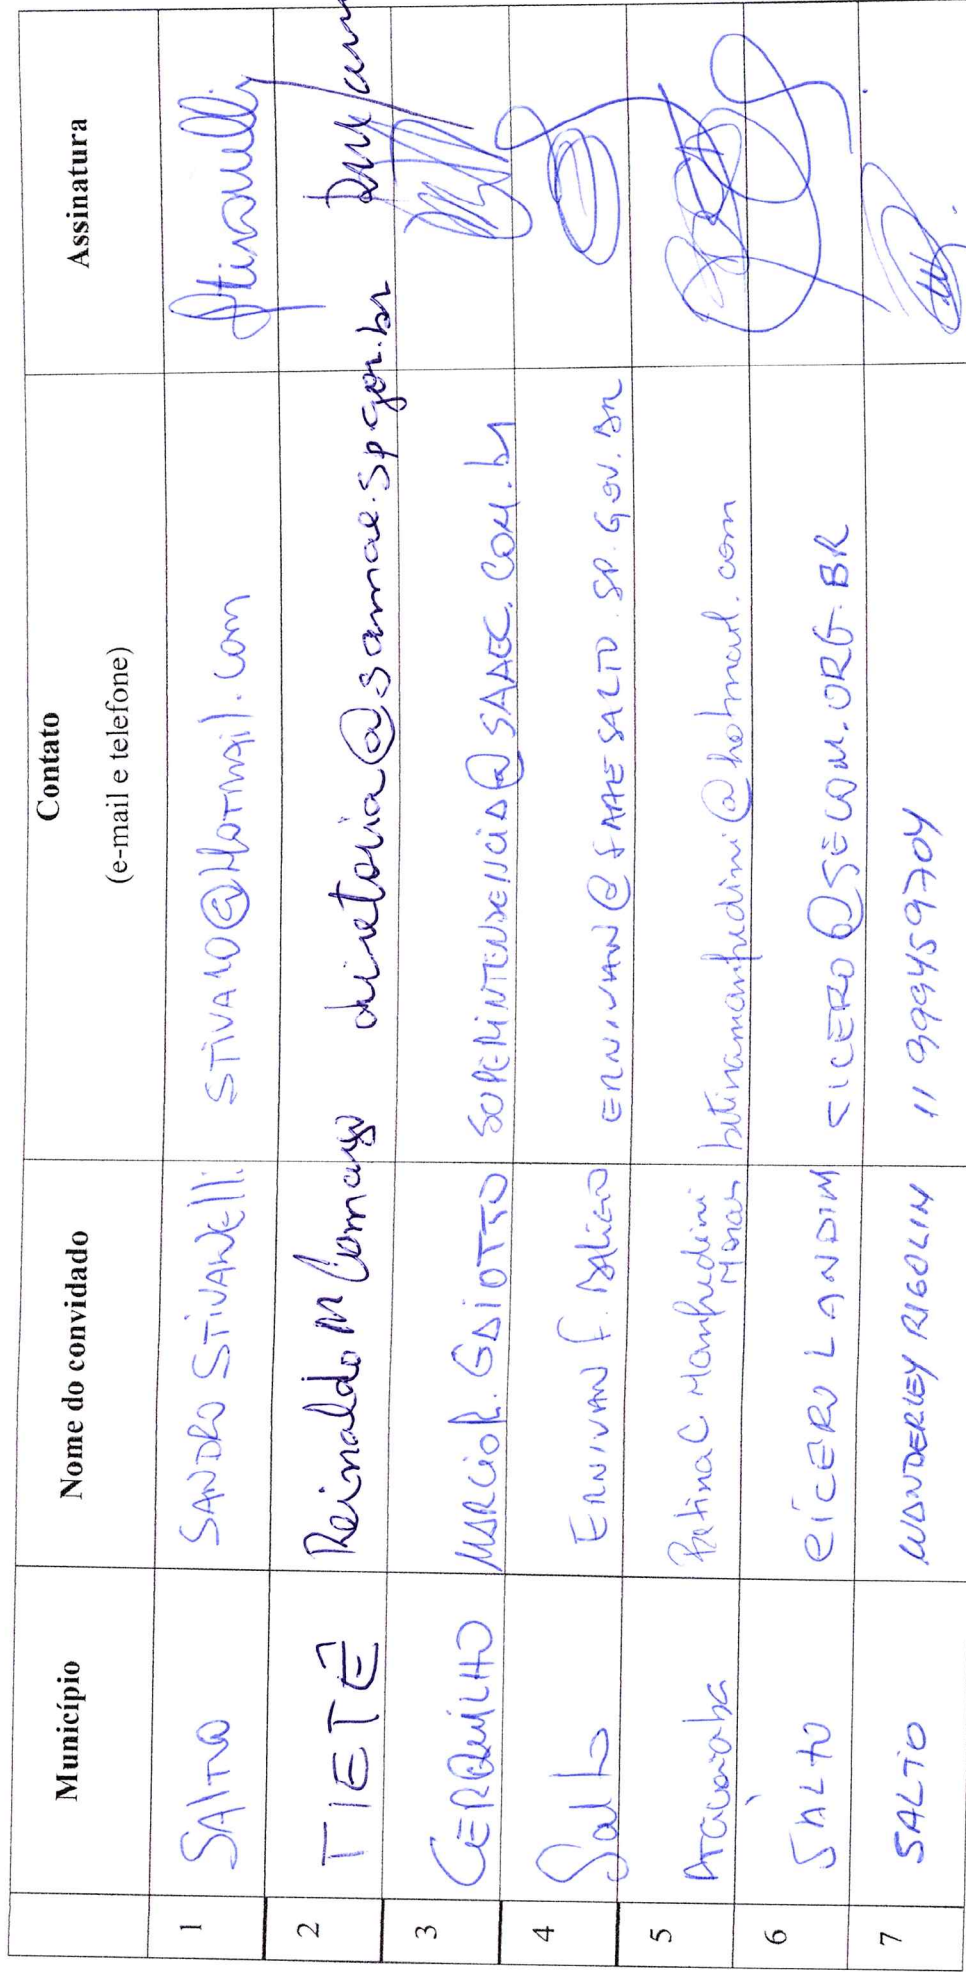 Município Nome do convidado Contato Assinatura
(e-mail e telefone)
1 SALTO SANDRO STIVANELLI STIVA10@HOTMAIL.COM Stivanelli
2 TIETÊ Reinaldo M Camargo diretoria@samae.sp.gov.br
3 CERQUILHO MARCIO R. GAIOTTO SUPERINTENDENCIA@SAAEC.COM.br
4 Salto ERNIVAN F. ERNIVAN@SAAESALTO.SP.GOV.BR
5 Araçoiaba Betina C Manfredini betinamanfredini@hotmail.com
Moraes
6 SALTO CÍCERO LANDIM CICERO@SECOM.ORG.BR
7 SALTO WANDERLEY RIGOLIN 11 999459704